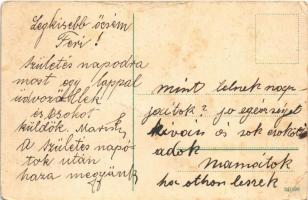 Legkisebb öcsém
Feri!
születés napodra
most egy lappal
üdvözöllek
és csókot
küldök. Mariska
A születés napo
tok után
haza megyünk
mint telnek nap
jaitok? jo egésséget
kivan és sok
adok
Mamátok
ha otthon leszek